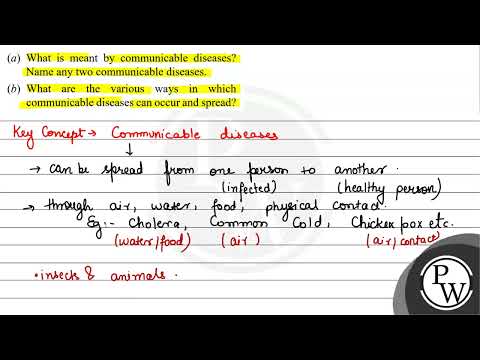 (a) What is meant by communicable diseases?
Name any two communicable diseases.
(b) What are the various ways in which
communicable diseases can occur and spread?
Key Concept → Communicable diseases
↓
→ can be spread from one person to another.
(infected) (healthy person)
→ through air, water, food, physical contact.
Eg:- Cholera, Common Cold, Chicken pox etc.
(water/food) (air) (air/contact)
• insects & animals.
PW